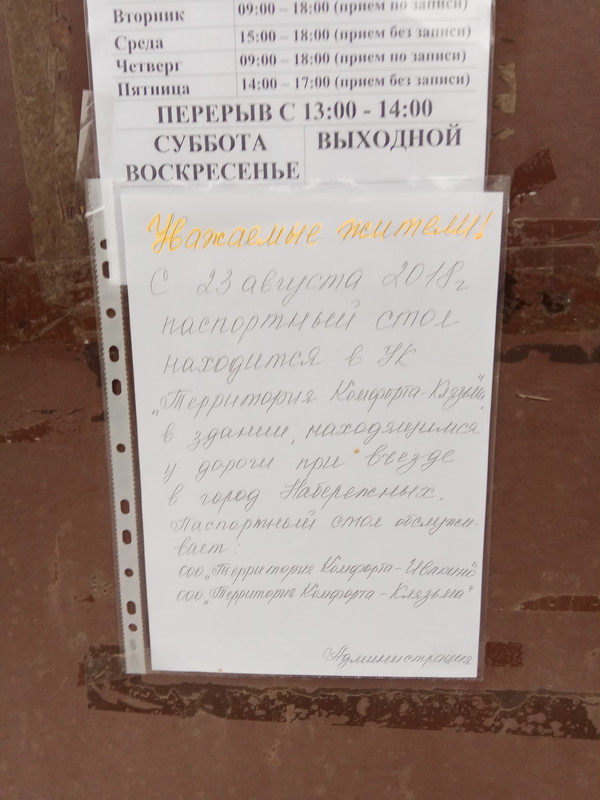 Вторник 09:00 – 18:00 (прием по записи)
Среда 15:00 – 18:00 (прием без записи)
Четверг 09:00 – 18:00 (прием по записи)
Пятница 14:00 – 17:00 (прием без записи)
ПЕРЕРЫВ С 13:00 - 14:00
СУББОТА ВЫХОДНОЙ
ВОСКРЕСЕНЬЕ
Уважаемые жители!
С 23 августа 2018г
паспортный стол
находится в УК
„Территория Комфорта-Клязьма"
в здании, находящимся
у дороги при въезде
в город Набережных.
Паспортный стол обслужи-
вает:
ООО „Территория Комфорта-Ивакино"
ООО „Территория Комфорта - Клязьма"
Администрация